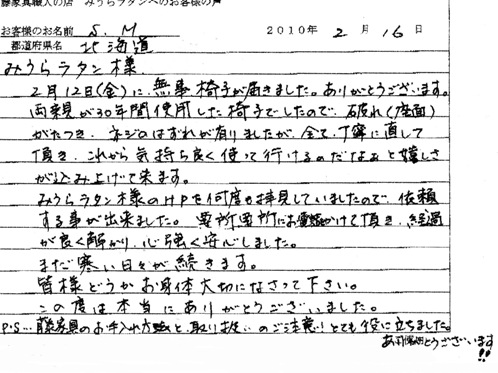 藤家具職人の店 みうらラタンへのお客様の声
お客様のお名前 S.M 2010年 2月 16日
都道府県名 北海道
みうらラタン様
2月12日(金)に、無事椅子が届きました。ありがとうございます。
両親が30年間使用した椅子でしたので、破れ(座面)
がたつき、ネジのはずれが有りましたが、全て、丁寧に直して
頂き、これから気持ち良く使って行けるのだなぁと嬉しさ
が込み上げて来ます。
みうらラタン様のHPを何度も拝見していましたので、依頼
する事が出来ました。要所要所にお電話かけて頂き、経過
が良く解かり、心強く安心しました。
まだ寒い日々が続きます。
皆様どうかお身体大切になさって下さい。
この度は本当にありがとうございました。
P.S… 藤家具のお手入れ方法と、取り扱いのご注意!とても役に立ちました。
ありがとうございます!!